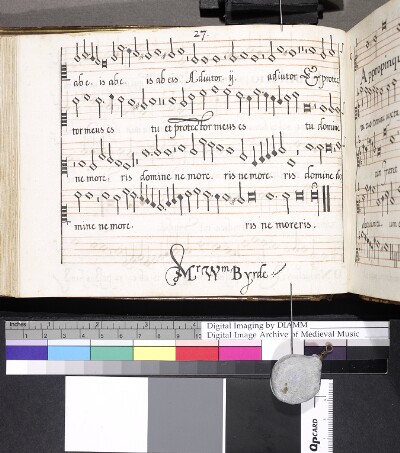 27
abc. is abc. is abcis. Adiutor ij. adiutor Et protec
tor meus es tu et protector meus es tu domine
ne more. ris domine ne more. ris ne more. ris domine
mine ne more. ris ne moreris.
Mr. Wm Byrde.
Appropinqu
Inches 1 2
Digital Imaging by DIAMM
Digital Image Archive of Medieval Music
QPCARD